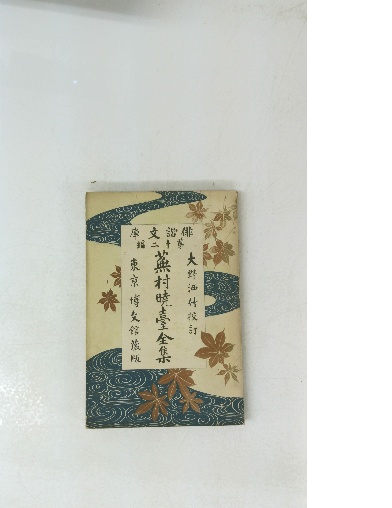 俳諧文庫
第十二編
大野洒竹校訂
蕪村曉臺全集
東京 博文館蔵版